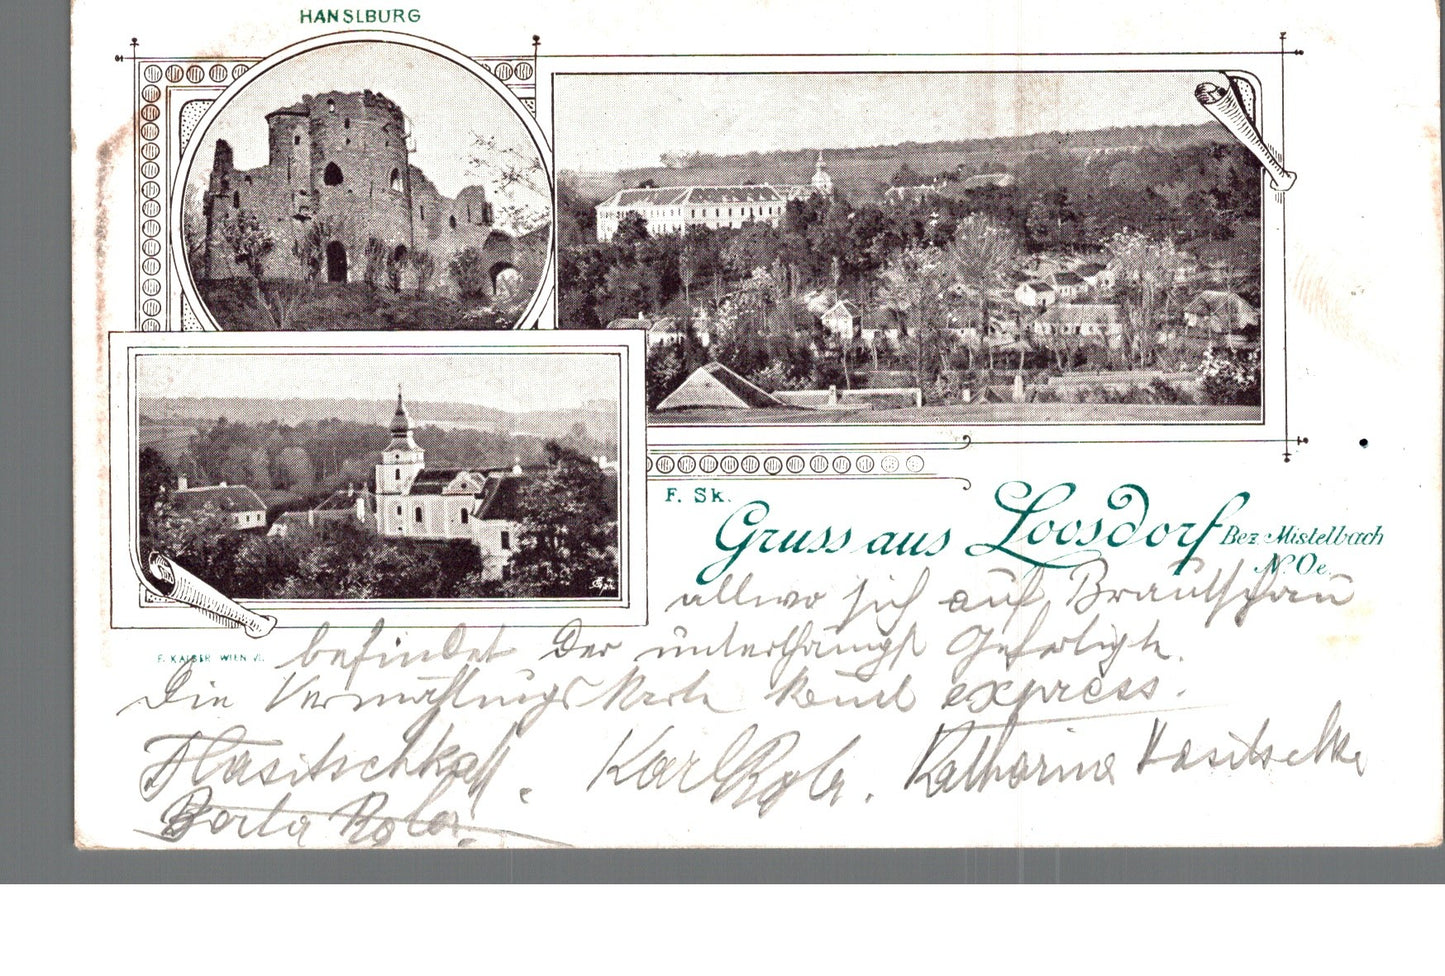 HANSLBURG
F. Sk.
Gruss aus Loosdorf Bez. Mistelbach
N. Oe.
F. KAISER WIEN VI.
allwo sich auf Brautschau
befindet der unterthänigst Gefertigte.
Die Vermählungskarte kommt express.
Hasitschka. Karl Rola. Katharina Hasitschka
Berta